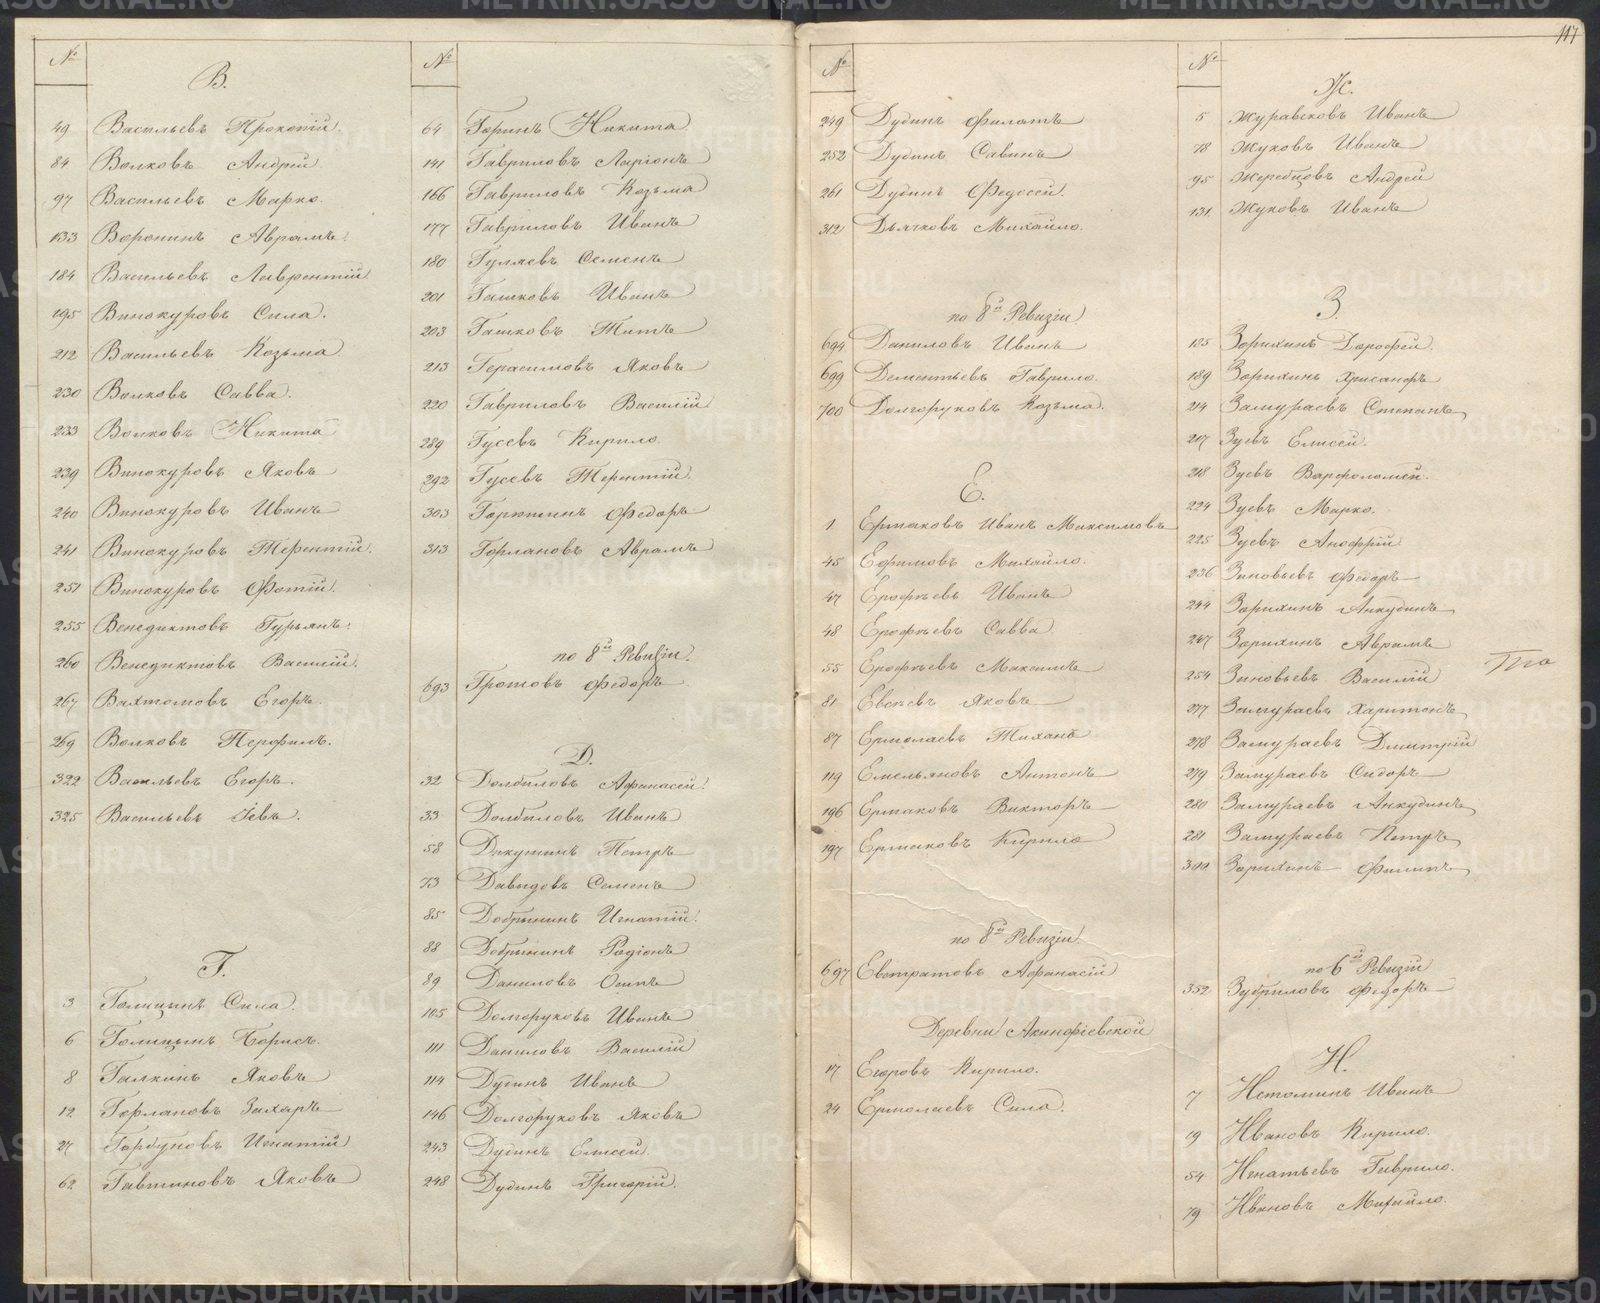 117
№
В.
49 Васильевъ Прокопій.
84 Волковъ Андрей
97 Васильевъ Марко.
133 Воронинъ Аврамъ.
184 Васильевъ Лаврентій
195 Винокуровъ Сила.
212 Васильевъ Козьма
230 Волковъ Савва.
233 Волковъ Никита
239 Винокуровъ Яковъ
240 Винокуровъ Иванъ
241 Винокуровъ Терентій.
251 Винокуровъ Фотій.
255 Венедиктовъ Гурьянъ.
260 Венедиктовъ Василій.
267 Вахтомовъ Егоръ.
269 Волковъ Перфилъ.
322 Васильевъ Егоръ.
325 Васильевъ Іевъ.
Г.
3 Голицынъ Сила.
6 Голицынъ Борисъ.
8 Галкинъ Яковъ
12 Горлановъ Захаръ
27 Горбуновъ Игнатій
62 Гавшиновъ Яковъ
№
64 Горинъ Никита
141 Гавриловъ Ларіонъ
166 Гавриловъ Козьма
177 Гавриловъ Иванъ
180 Гуляевъ Семенъ
201 Гашковъ Иванъ
203 Гашковъ Титъ
213 Герасимовъ Яковъ
220 Гавриловъ Василій
289 Гусевъ Кирило.
292 Гусевъ Терентій.
303 Горюшинъ Федоръ
313 Горлановъ Аврамъ
по 8й Ревизіи.
693 Громовъ Федоръ
Д.
32 Долбиловъ Афанасей.
33 Долбиловъ Иванъ
58 Петръ
73 Давыдовъ Семенъ
85 Добрынинъ Игнатій.
88 Добрынинъ Родіонъ
89 Даниловъ Осипъ
105 Долгоруковъ Иванъ
111 Даниловъ Василій
114 Дудинъ Иванъ
146 Долгоруковъ Яковъ
243 Дудинъ Елисей.
248 Дудинъ Григорій.
№
249 Дудинъ Филатъ
252 Дудинъ Савинъ
261 Дудинъ Федосей.
312 Дьячковъ Михайло.
по 8й Ревизіи
694 Даниловъ Иванъ
699 Дементьевъ Гаврило.
700 Долгоруковъ Козьма.
Е.
1 Ермаковъ Иванъ Максимовъ
45 Ефимовъ Михайло.
47 Ерофѣевъ Иванъ
48 Ерофѣевъ Савва
55 Ерофѣевъ Максимъ
81 Евсѣевъ Яковъ
87 Ермолаевъ Тихонъ
119 Емельяновъ Антонъ
196 Ермаковъ Викторъ
197 Ермаковъ Кирило
по 8й Ревизіи.
697 Евстратовъ Афанасій
Деревни Акинфіевской
17 Егоровъ Кирило.
24 Ермолаевъ Сила.
№
Ж.
5 Журавковъ Иванъ
78 Жуковъ Иванъ
95 Жеребцовъ Андрей
131. Жуковъ Иванъ
З.
135 Зорихинъ Дорофей.
189 Зорихинъ Хрисанфъ
214 Замураевъ Степанъ
217 Зуевъ Елисей.
218 Зуевъ Варфоломей.
224 Зуевъ Марко.
225 Зуевъ Анофрій
236 Зиновьевъ Федоръ
244 Зорихинъ Анкудинъ
247 Зорихинъ Аврамъ
254 Зиновьевъ Василій
277 Замураевъ Харитонъ
278 Замураевъ Дмитрій
279 Замураевъ Сидоръ
280 Замураевъ Анкудинъ
281 Замураевъ Петръ
300 Зорихинъ Филипъ
по 6й Ревизіи
352 Зубриловъ Федоръ
И.
7 Истоминъ Иванъ
19 Ивановъ Кирило.
54 Игнатьевъ Гаврило.
79 Ивановъ Михайло.
METRIKI.GASO-URAL.RU